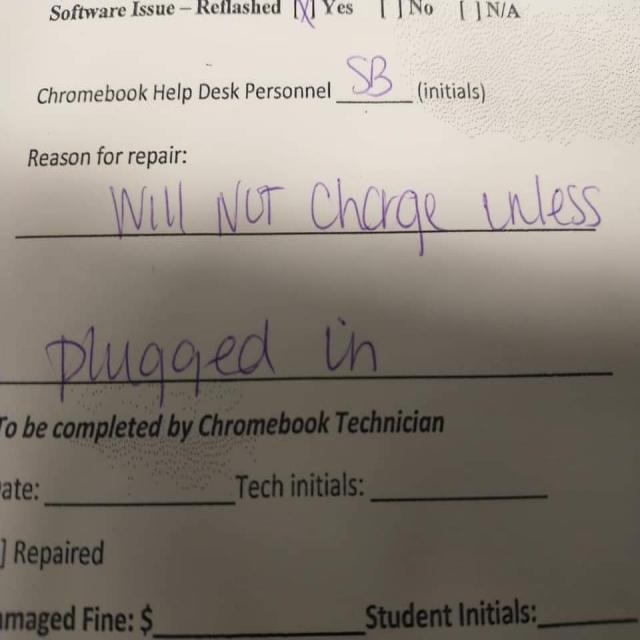 Software Issue – Reflashed [X] Yes [ ] No [ ] N/A
Chromebook Help Desk Personnel SB (initials)
Reason for repair:
Will NOT Charge unless
plugged in
To be completed by Chromebook Technician
ate: ____________ Tech initials: ____________
] Repaired
maged Fine: $____________ Student Initials:________